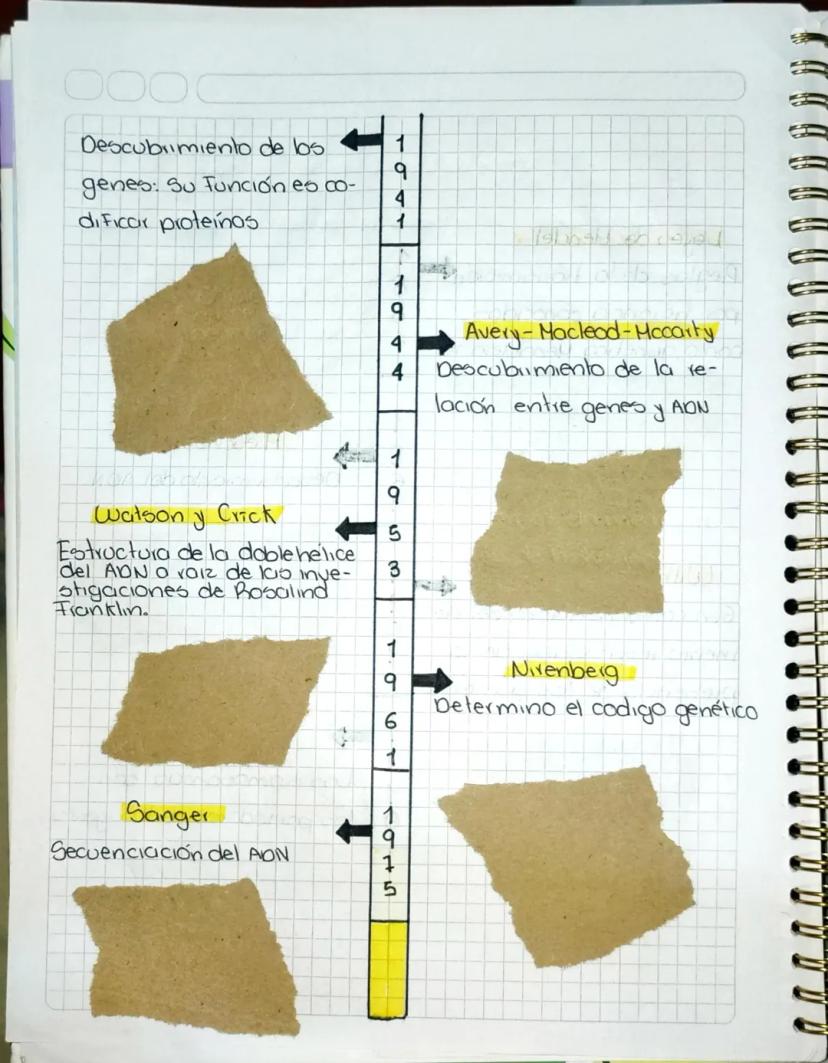 Descubrimiento de los
genes: Su Función es co-
dificar proteínas
1
9
4
1
1
9
4
4
Avery-Macleod-Mccarty
Descubrimiento de la re-
lación entre genes y ADN
1
9
5
3
Watson y Crick
Estructura de la doble hélice
del ADN a raiz de las inve-
stigaciones de Rosalind
Franklin.
1
9
6
1
Nirenberg
Determino el codigo genético
1
9
7
5
Sanger
Secuenciación del ADN